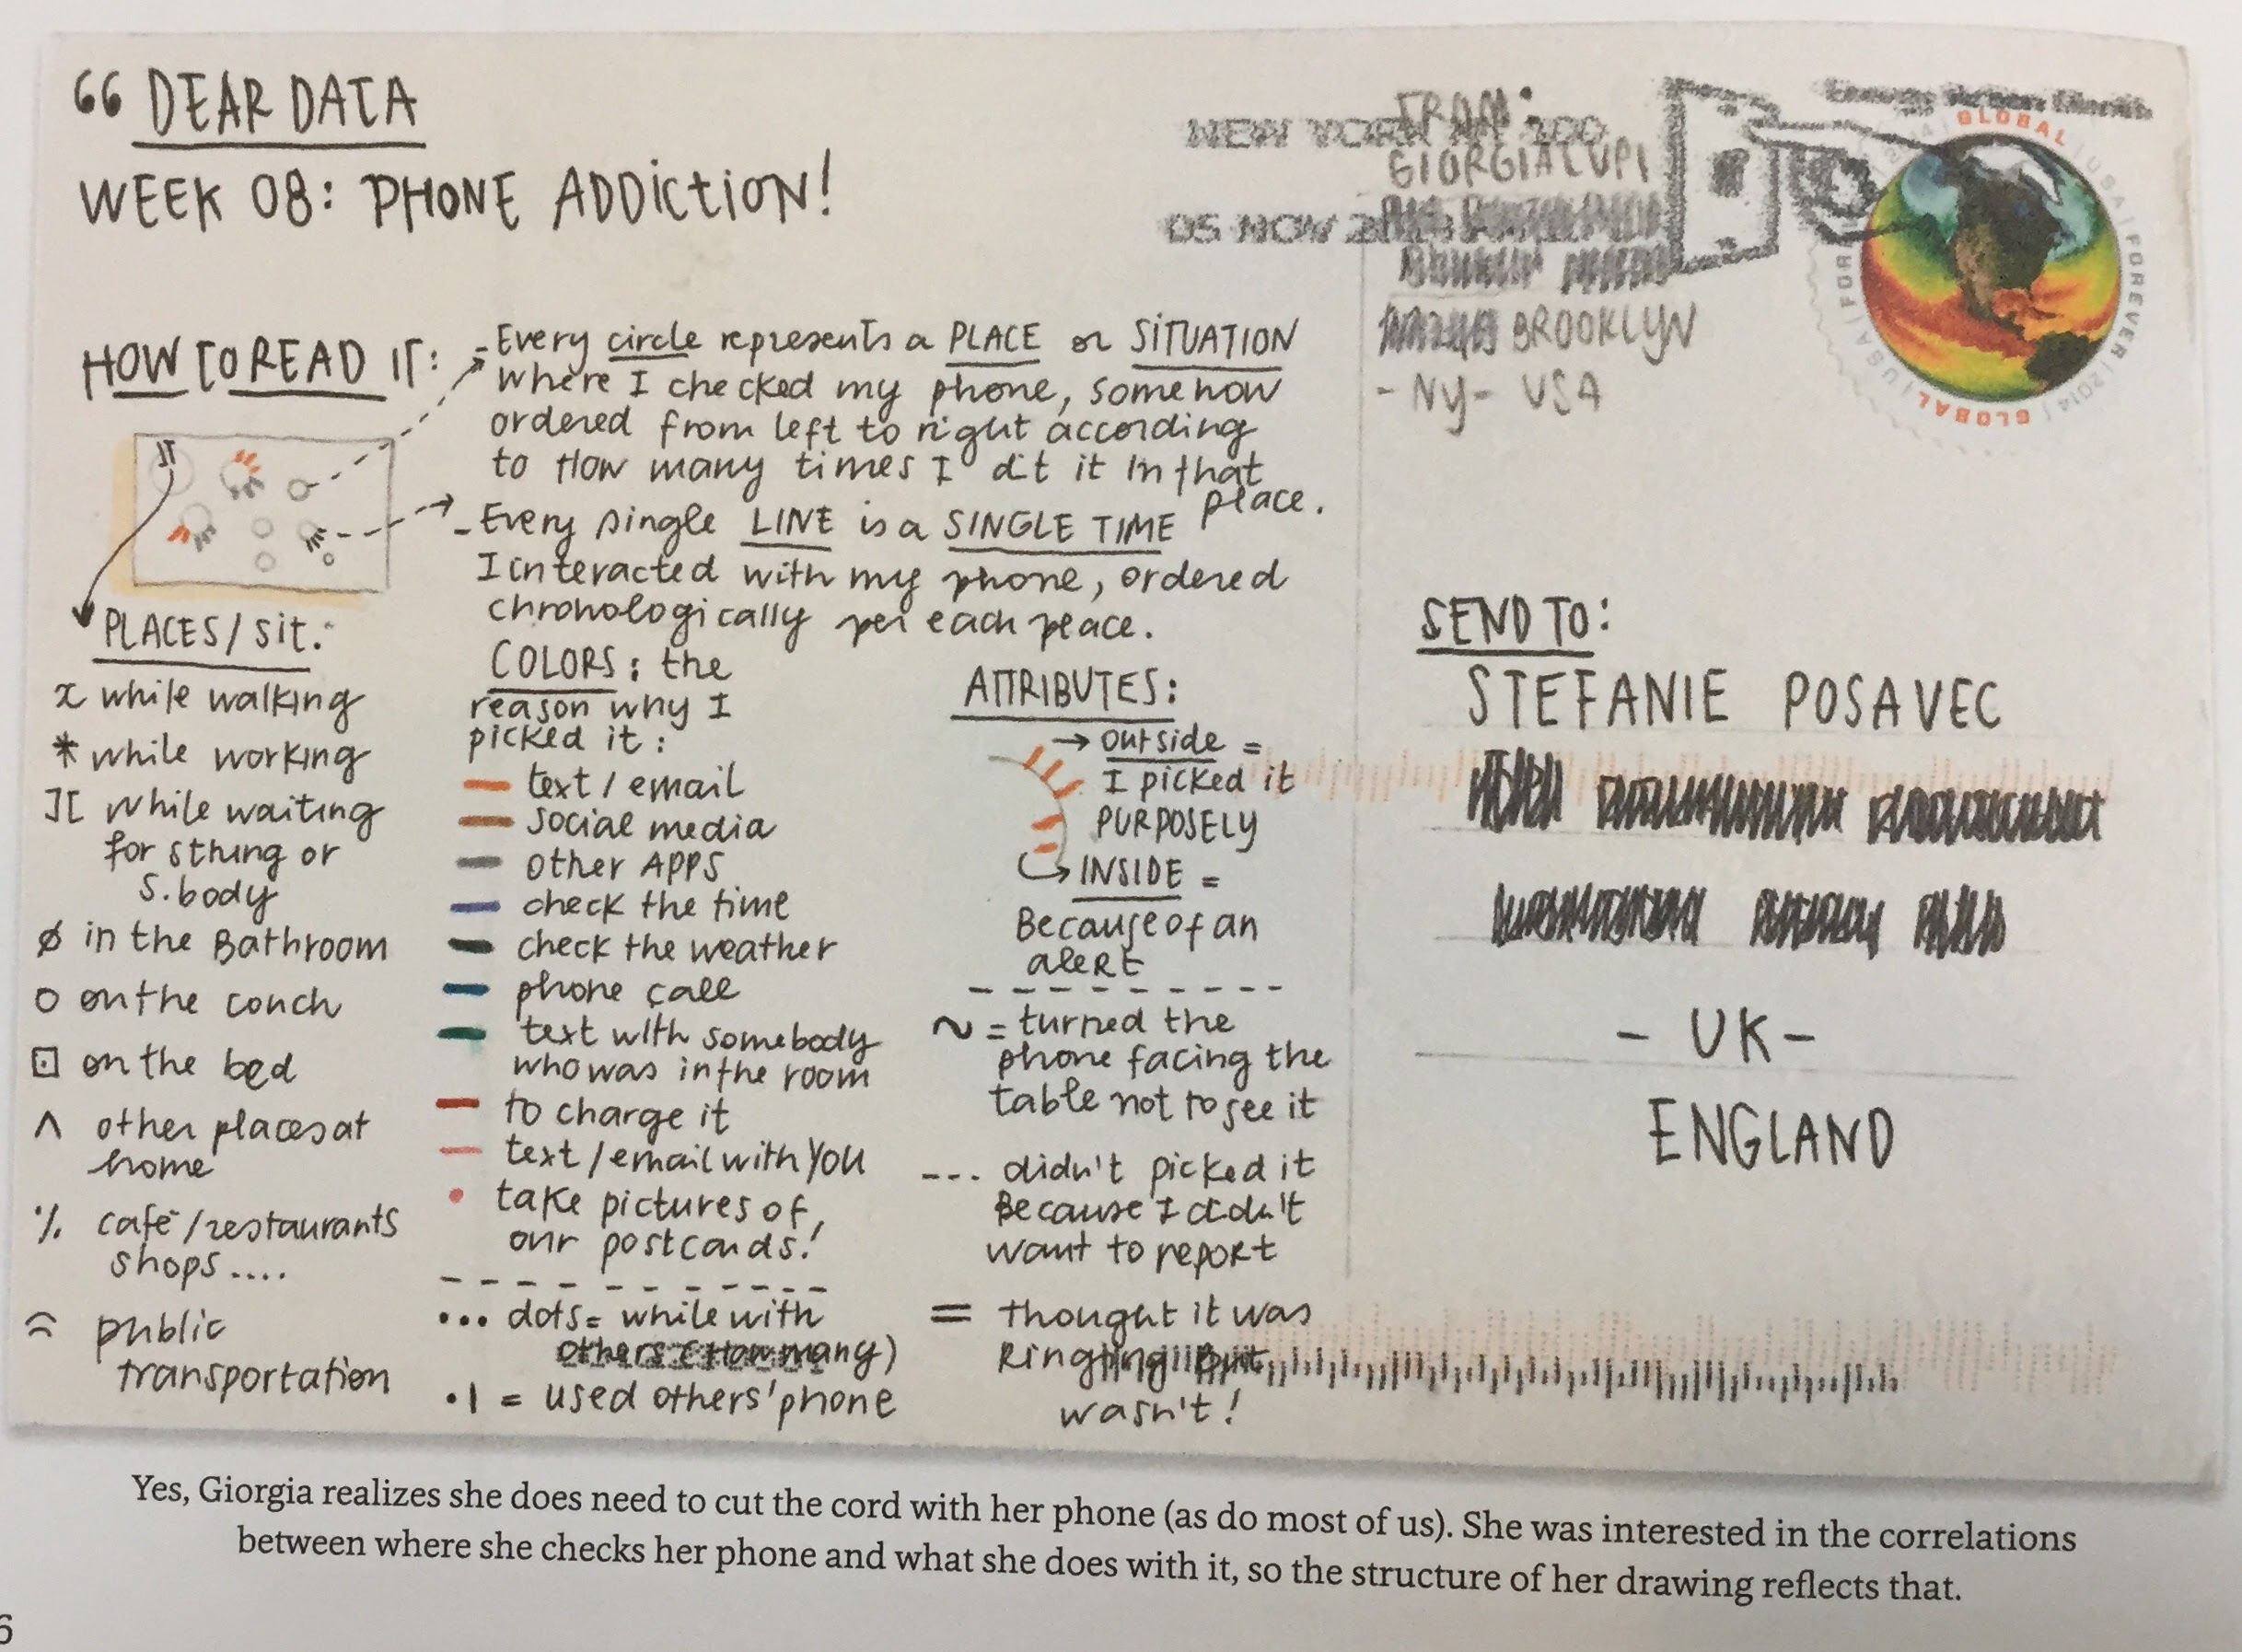 “ DEAR DATA
WEEK 08: PHONE ADDICTION!
HOW TO READ IT:
- Every circle represents a PLACE or SITUATION
where I checked my phone, somehow
ordered from left to right according
to How many times I dit it in that
place.
- Every single LINE is a SINGLE TIME
I interacted with my phone, ordered
chronologically per each peace.
PLACES / sit.
x while walking
* while working
][ while waiting
for sthing or
s.body
ø in the Bathroom
o on the couch
⊡ on the bed
^ other places at
home
·/. cafe/restaurants
shops....
public
transportation
COLORS: the
reason why I
picked it:
text / email
social media
other APPS
check the time
check the weather
phone call
text with somebody
who was in the room
to charge it
text / email with YOU
take pictures of,
our postcards!
••• dots = while with
others (How many)
•| = used others' phone
ATTRIBUTES:
→ outside =
I picked it
PURPOSELY
→ INSIDE =
Because of an
aleRt
~ = turned the
phone facing the
table not to see it
--- didn't picked it
Because I didn't
want to report
= thought it was
Ringing But
wasn't!
FROM:
GIORGIA LUPI
BROOKLYN
- NY - USA
NEW YORK NY 100
05 NOV
GLOBAL | USA | FOREVER | 2014 | GLOBAL | USA | FOREVER | 2014
SEND TO:
STEFANIE POSAVEC
- UK -
ENGLAND
Yes, Giorgia realizes she does need to cut the cord with her phone (as do most of us). She was interested in the correlations
between where she checks her phone and what she does with it, so the structure of her drawing reflects that.
6